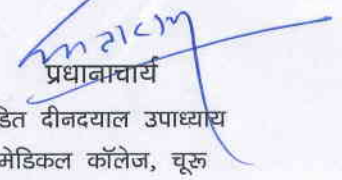 प्रधानाचार्य
डित दीनदयाल उपाध्याय
मेडिकल कॉलेज, चूरू